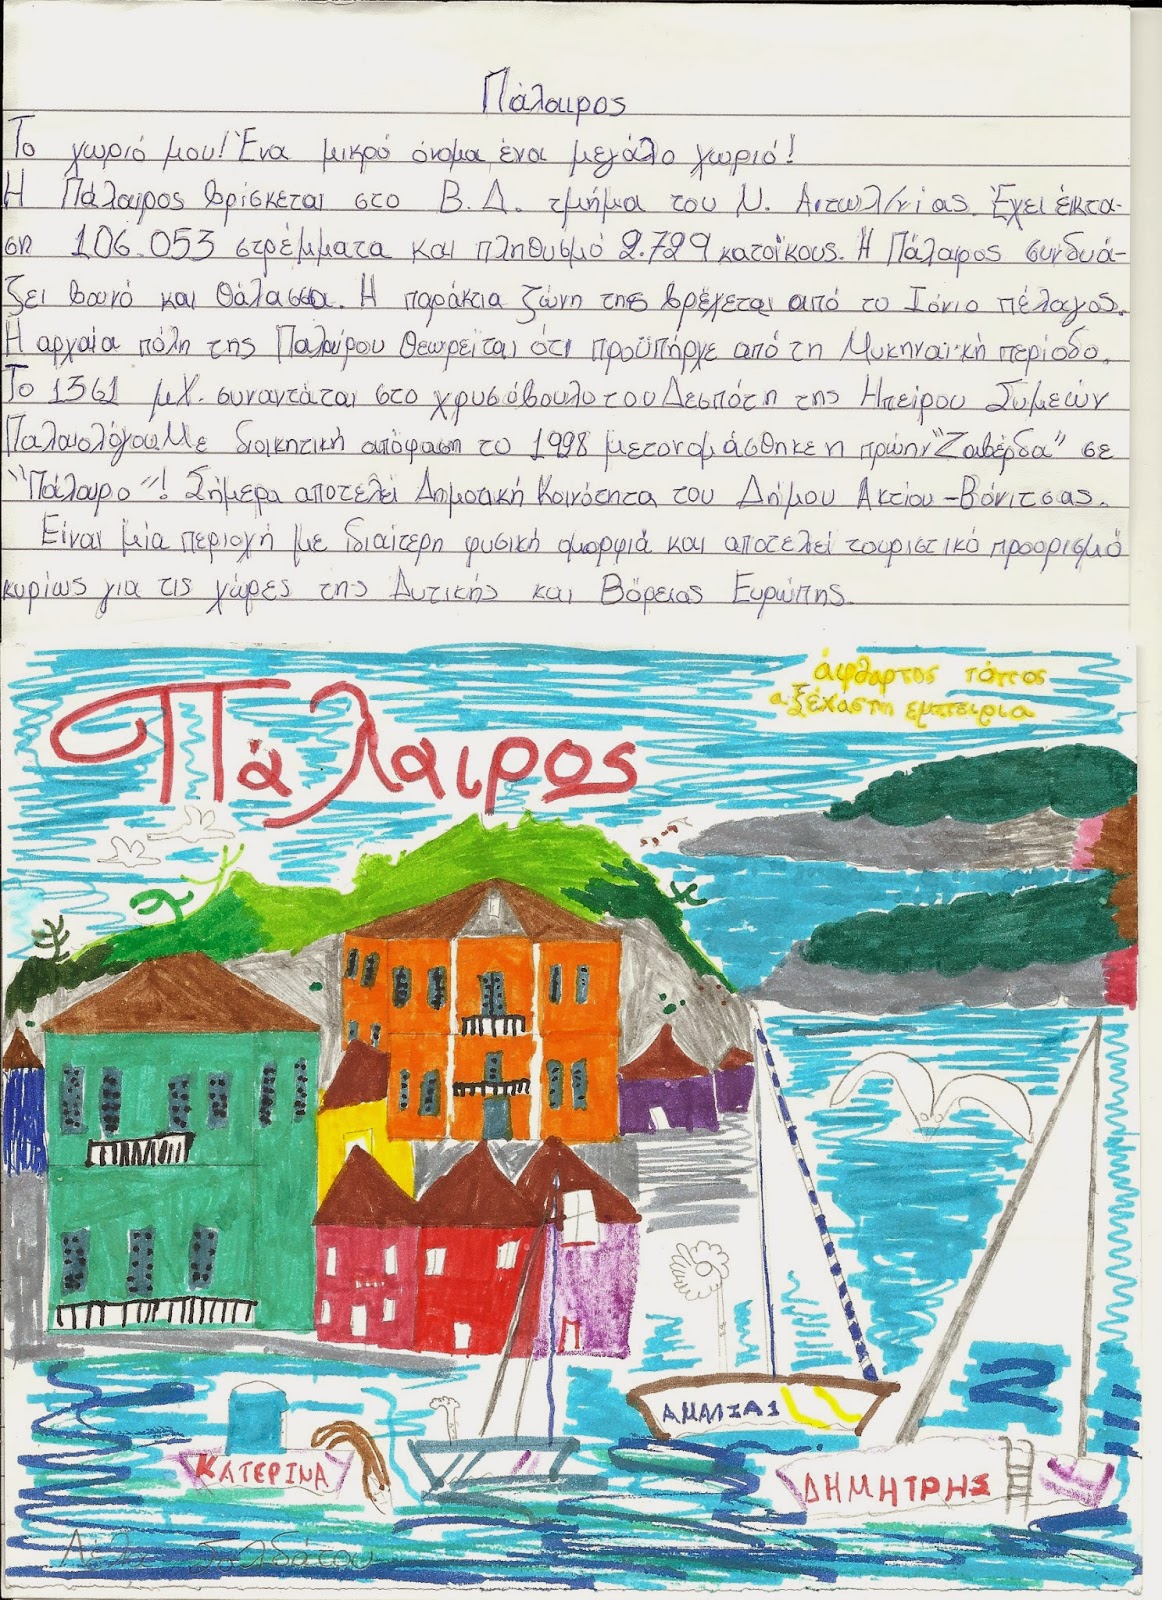 Πάλαιρος
Το χωριό μου! Ένα μικρό όνομα, ένα μεγάλο χωριό!
Η Πάλαιρος βρίσκεται στο Β.Δ. τμήμα του Ν. Αιτωλ/νίας. Έχει έκτα-
ση 106.053 στρέμματα και πληθυσμό 2.729 κατοίκους. Η Πάλαιρος συνδυά-
ζει βουνό και θάλασσα. Η παράκτια ζώνη της βρέχεται από το Ιόνιο πέλαγος.
Η αρχαία πόλη της Παλαίρου θεωρείται ότι προϋπήρχε από τη Μυκηναϊκή περίοδο.
Το 1361 μΧ. συναντάται στο χρυσόβουλο του Δεσπότη της Ηπείρου Συμεών
Παλαιολόγου. Με διοικητική απόφαση το 1998 μετονομάσθηκε η πρώην "Ζαβέρδα" σε
"Πάλαιρο"! Σήμερα αποτελεί Δημοτική Κοινότητα του Δήμου Ακτίου-Βόνιτσας.
Είναι μία περιοχή με ιδιαίτερη φυσική ομορφιά και αποτελεί τουριστικό προορισμό
κυρίως για τις χώρες της Δυτικής και Βόρειας Ευρώπης.
άφθαρτος τόπος
αξέχαστη εμπειρία
Πάλαιρος
ΑΜΑΛΙΑ 1
ΚΑΤΕΡΙΝΑ
ΔΗΜΗΤΡΗΣ